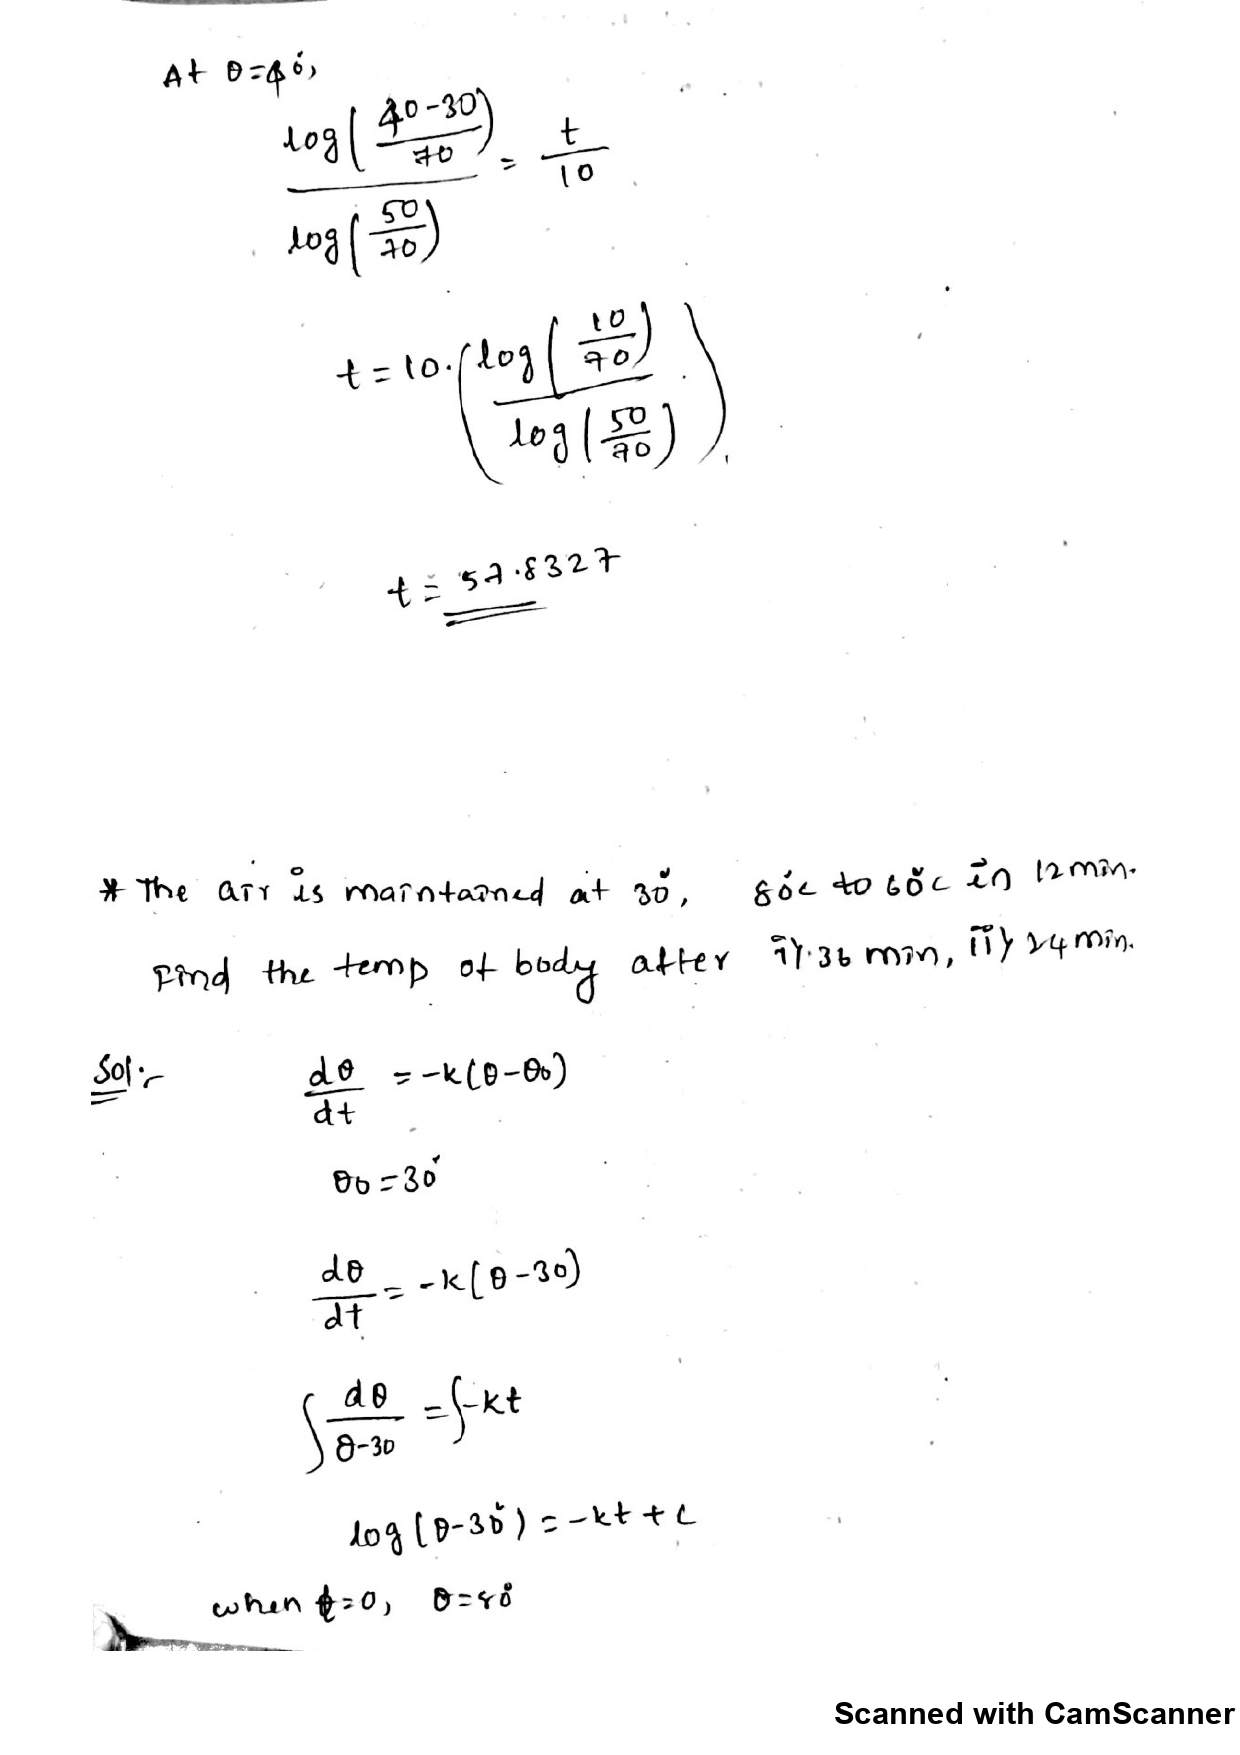 At θ=40°,
log(40-30/70) / log(50/70) = t/10
t=10.(log(10/70) / log(50/70)).
t = 57.8327
* The air is maintained at 30°, 80°c to 60°c in 12 min.
Find the temp of body after i) 36 min, ii) 24 min.
Sol:-
dθ/dt = -k(θ-θ0)
θ0=30°
dθ/dt = -k(θ-30)
∫ dθ/θ-30 = ∫-kt
log(θ-30°) = -kt + c
when t=0, θ=80°
Scanned with CamScanner